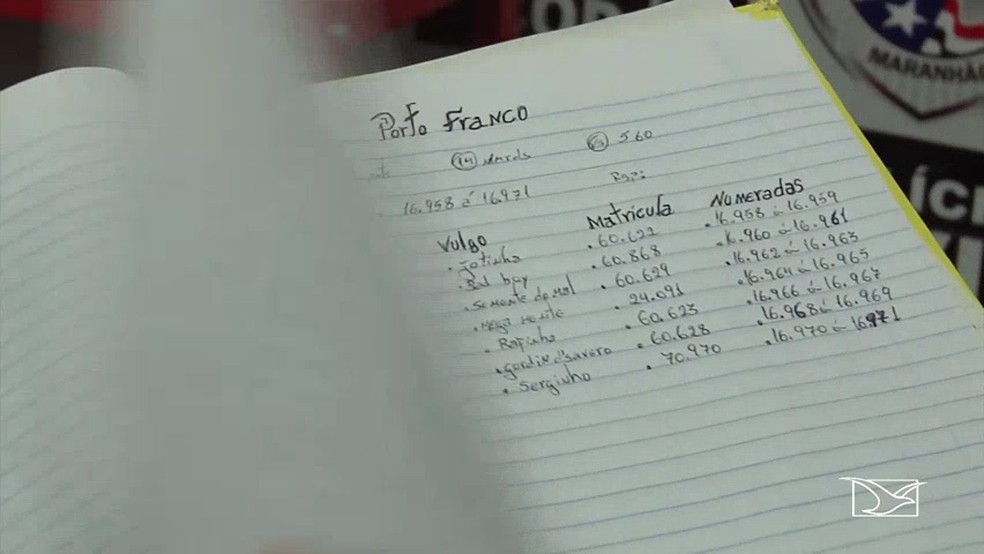 MARANHÃO
Porto Franco
14 560
16.958 á 16.971
Vulgo Matricula Numeradas
. jotinha . 60.622 . 16.958 á 16.959
. Bad boy . 60.868 . 16.960 á 16.961
. semente do mal . 60.629 . 16.962 á 16.963
. mega mente . 24.091 . 16.964 á 16.965
. Rafinha . 60.623 . 16.966 á 16.967
. gordin . 60.628 . 16.968 á 16.969
. serginho . 70.970 . 16.970 á 16.971